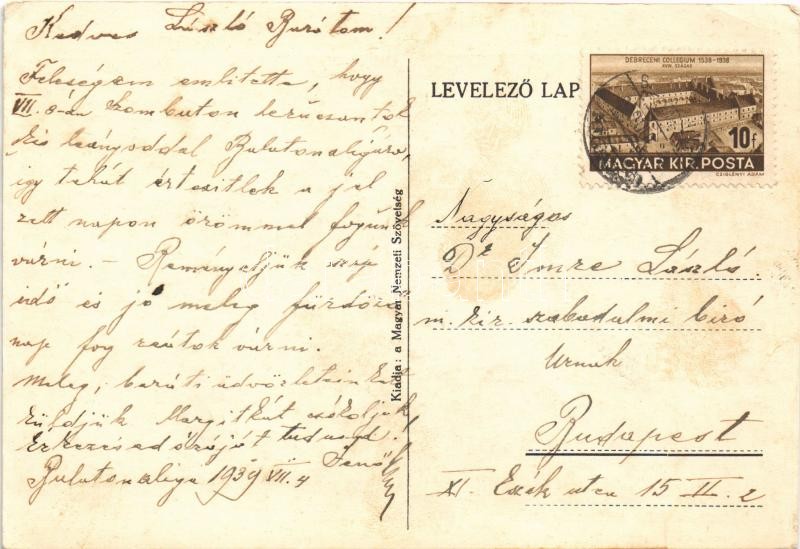 Kedves László Barátom!
Feleségem említette, hogy
VII. 8-án szombaton lerúcsantok
kis leányoddal Balatonaligára,
így tehát értesítlek a jel
zett napon örömmel fogunk
várni. – Reméljük szép
idő és jó meleg fürdőző
nap fog reátok várni.
Meleg, baráti üdvözletein
küldjük Margitkát csókoljuk
Érkezésed óráját tudasd!
Balatonaliga 1939 VII. 4 Jenő
Kiadja: a Magyar Nemzeti Szövetség
LEVELEZŐ LAP
DEBRECENI COLLEGIUM 1538-1938
XVIII. SZÁZAD
10f
MAGYAR KIR. POSTA
CZIGLÉNYI ÁDÁM
Nagyságos
Dr Imre László.
m. kir. szabadalmi biró
Urnak
Budapest
XI. Eszék utca 15 II. 2